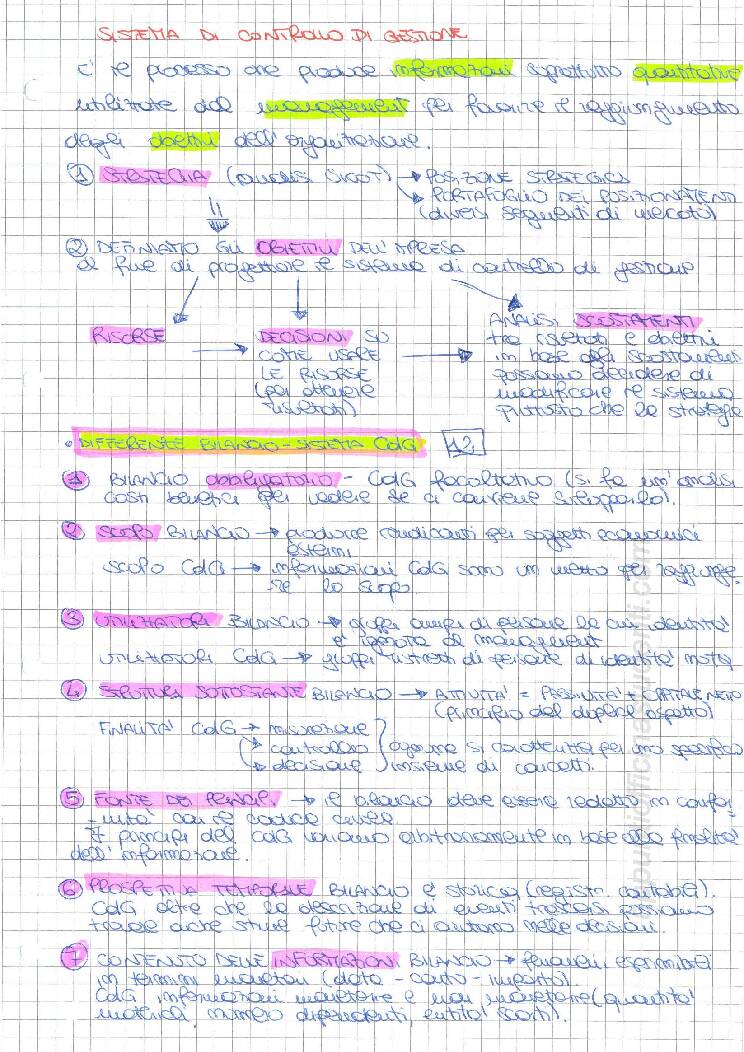 SISTEMA DI CONTROLLO DI GESTIONE
E' il processo che produce informazioni soprattutto quantitative
utilizzate dal management per favorire il raggiungimento
degli obiettivi dell'organizzazione.
① STRATEGIA (analisi SWOT) → POSIZIONE STRATEGICA
↘ PORTAFOGLIO DEI POSIZIONAMENTI
(diversi segmenti di mercato)
② DEFINIAMO GLI OBIETTIVI DELL'IMPRESA
al fine di progettare il sistema di controllo di gestione
RISORSE → DECISIONI SU
COME USARE
LE RISORSE
(per ottenere
risultati)
→ ANALISI SCOSTAMENTI
tra risultati e obiettivi
in base agli scostamenti
possiamo decidere di
modificare il sistema
piuttosto che la strategia
• DIFFERENZE BILANCIO - SISTEMA CdG 12.
① BILANCIO obbligatorio - CdG facoltativo (si fa un'analisi
costi benefici per vedere se ci conviene svilupparlo).
② SCOPO BILANCIO → produrre rendiconti per soggetti economici
esterni
SCOPO CdG → informazioni CdG sono un mezzo per raggiunge-
-re lo scopo
③ UTILIZZATORI BILANCIO → gruppi ampi di persone la cui identità
è ignota al management
UTILIZZATORI CdG → gruppi ristretti di persone di identità nota
④ STRUTTURA SOTTOSTANTE BILANCIO → ATTIVITA' = PASSIVITA' + CAPITALE NETTO
(principio del duplice aspetto)
FINALITA' CdG → misurazione
→ controllo } ognuna si caratterizza per uno specifico
→ decisione insieme di concetti.
⑤ FONTE DEI PRINCIPI → il bilancio deve essere redatto in confor-
-mità con il codice civile.
I principi del CdG variano arbitrariamente in base alla finalità
dell'informazione.
⑥ PROSPETTIVA TEMPORALE BILANCIO è storica (registri contabili).
CdG oltre che la descrizione di eventi trascorsi possiamo
trarre anche stime future che ci aiutano nelle decisioni.
⑦ CONTENUTO DELLE INFORMAZIONI BILANCIO → fenomeni esprimibili
in termini monetari (data - conto - importo).
CdG informazioni monetarie e non monetarie (quantità
materiali, numero dipendenti, entità scarti).